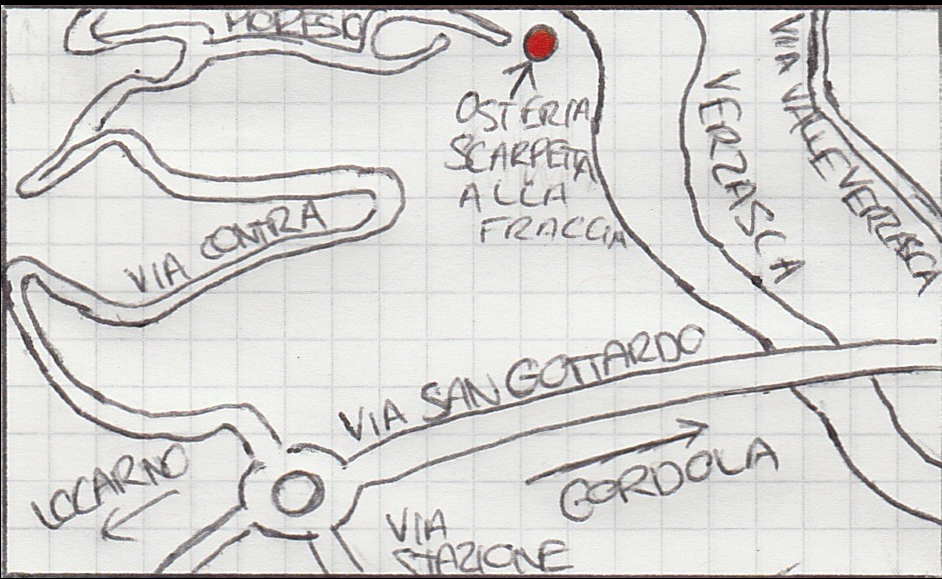 MORESIO
OSTERIA
SCARPETTA
ALLA
FRACCIA
VERZASCA
VIA VALLE VERZASCA
VIA CONTRA
VIA SAN GOTTARDO
LOCARNO
GORDOLA
VIA
STAZIONE